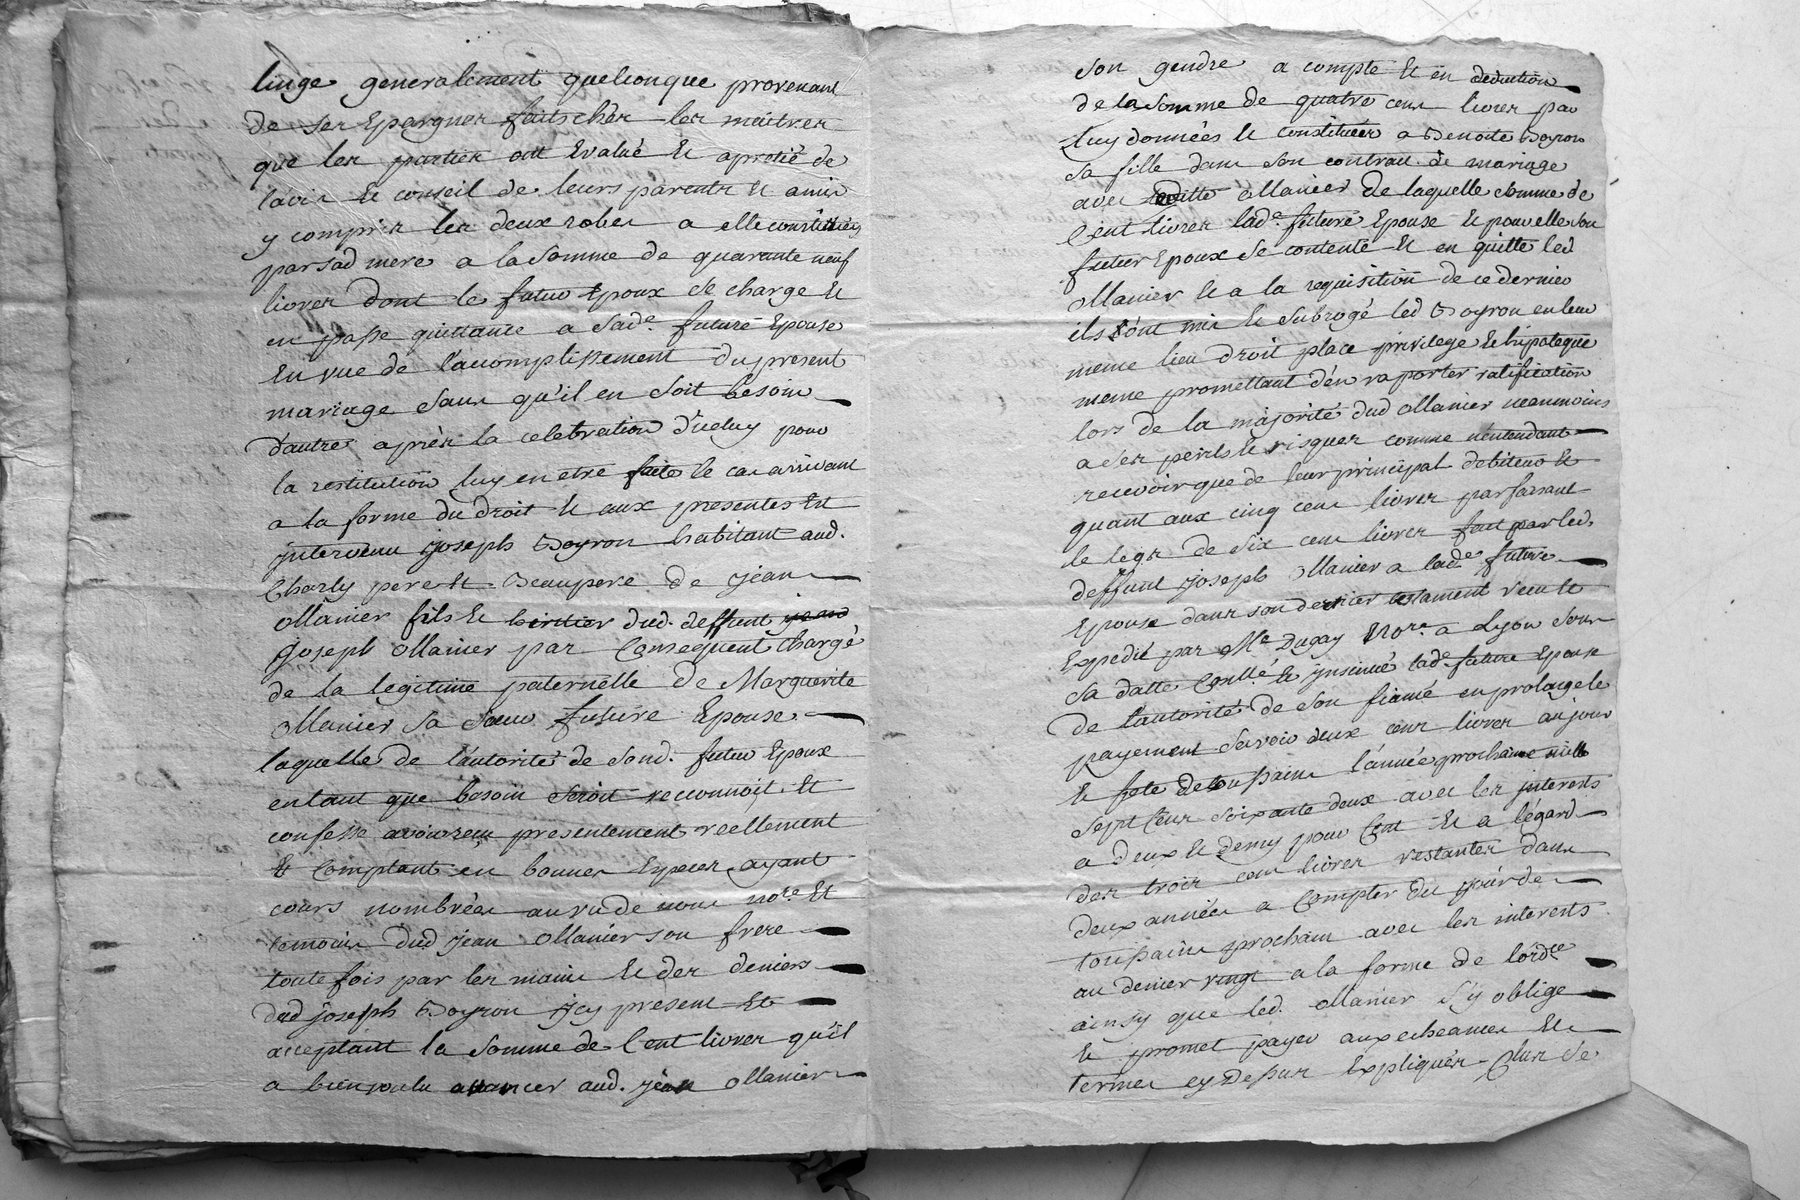 linge generalement quelconque provenant
de ses Epargnes fait scher les maitres
que les parties ont Evalué et aprecié de
l'avis et conseil de leurs parents et amis
y compris les deux robes a elle constituées
par sad mere a la somme de quarante neuf
livres dont le futur Epoux se charge et
en passe quittance a sade. future Epouse
En vue de l'accomplissement du present
mariage sans qu'il en soit besoin
d'autre après la celebration d'iceluy pour
la restitution luy en etre faite le cas arrivant
a la forme du droit et aux presentes Est
intervenu joseph Boyron habitant aud.
Charly pere et Beaupere de jean
Manier fils et heritier dud. deffunt jean
Joseph Manier par Consequent Chargé
de la legitime paternelle de Marguerite
Manier sa sœur future Epouse
laquelle de l'autorité de sond. futur Epoux
en tant que besoin seroit reconnoit et
confesse avoir reçu presentement reellement
et Comptant en bonnes Especes ayant
cours nombrées au vu de nous nore. Et
temoins dud jean Manier son frere
toute fois par les mains et des deniers
dud joseph Boyron Icy present et
acceptant la somme de Cent livres qu'il
a bien voulu avancer aud. jean Manier
son gendre a compte et en deduction
de la somme de quatre cens livres par
Luy données et constituées a Benoite Boyron
sa fille dans son contrat de mariage
avec ledit Manier de laquelle somme de
Cent livres lade. future Epouse et pour elle son
futur Epoux se contente et en quitte led
Manier et a la requisition de ce dernier
ils ont mis et subrogé led Boyron en leur
meme lieu droit place privilege et hipoteque
meme promettant d'en raporter ratification
lors de la majorité dud Manier neanmoins
a ses perils et risques comme n'entendant
recevoir que de leur principal debiteur et
quant aux cinq cens livres parfaisant
le legs de six cens livres fait par led.
deffunt joseph Manier a lade future
Epouse dans son dernier testament reçu et
Expedié par Me Dugay Nore. a Lyon sous
sa datte Conllé et insinué lade future Epouse
de l'autorité de son fiancé en proläge le
payement savoir deux cens livres au jour
et fete de toussaint l'année prochaine mille
sept Cens soixante deux avec les interests
a deux et demy pour Cent et a l'égard
des trois cens livres restantes dans
deux années a Compter du jour de
toussaint prochain avec les interests
au denier vingt a la forme de l'ordce
ainsy que led. Manier s'y oblige
et promet payer aux echeances et
termes cy dessus Expliqués Plus se